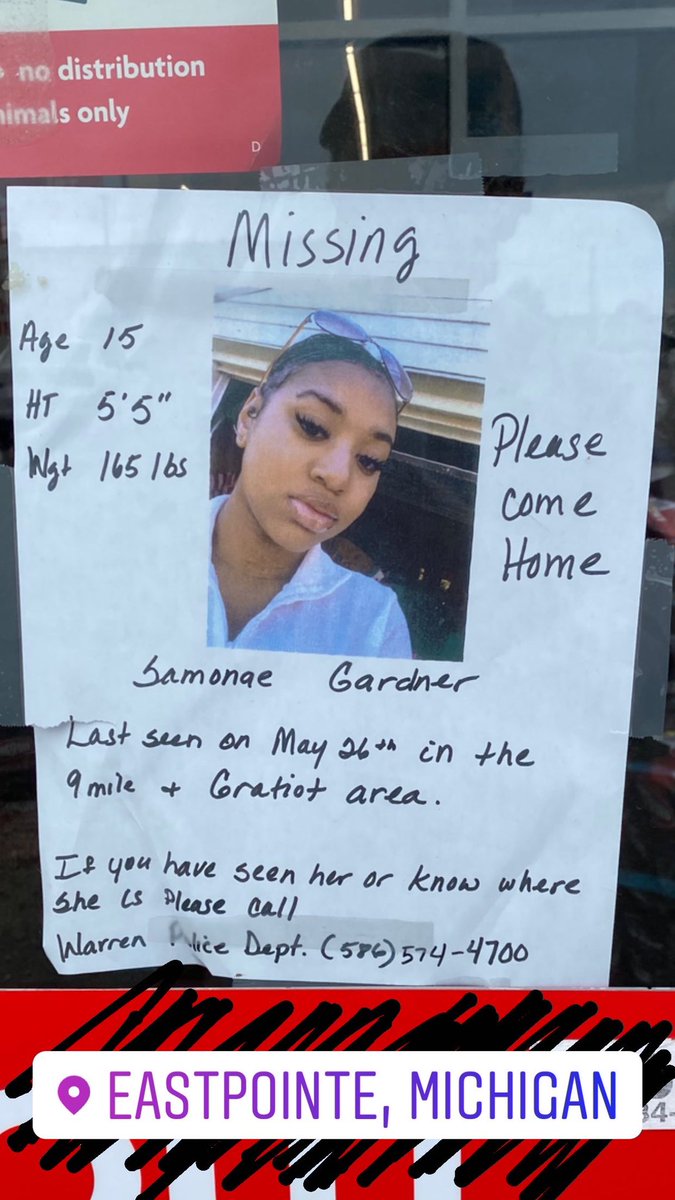 no distribution
nimals only
D
Missing
Age 15
HT 5'5"
Wgt 165 lbs
Please
come
Home
Samonae Gardner
Last seen on May 26th in the
9 mile + Gratiot area.
If you have seen her or know where
she is Please call
Warren Police Dept. (586) 574-4700
EASTPOINTE, MICHIGAN